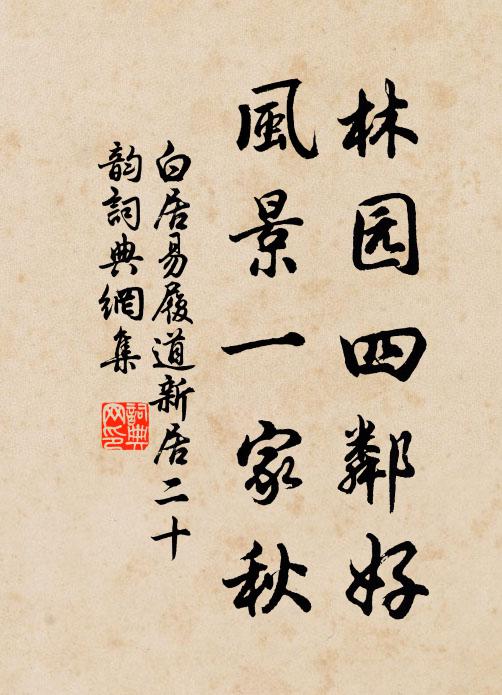 林园四鄰好
風景一家秋
白居易履道新居二十
韵詞典網集
詞典网印